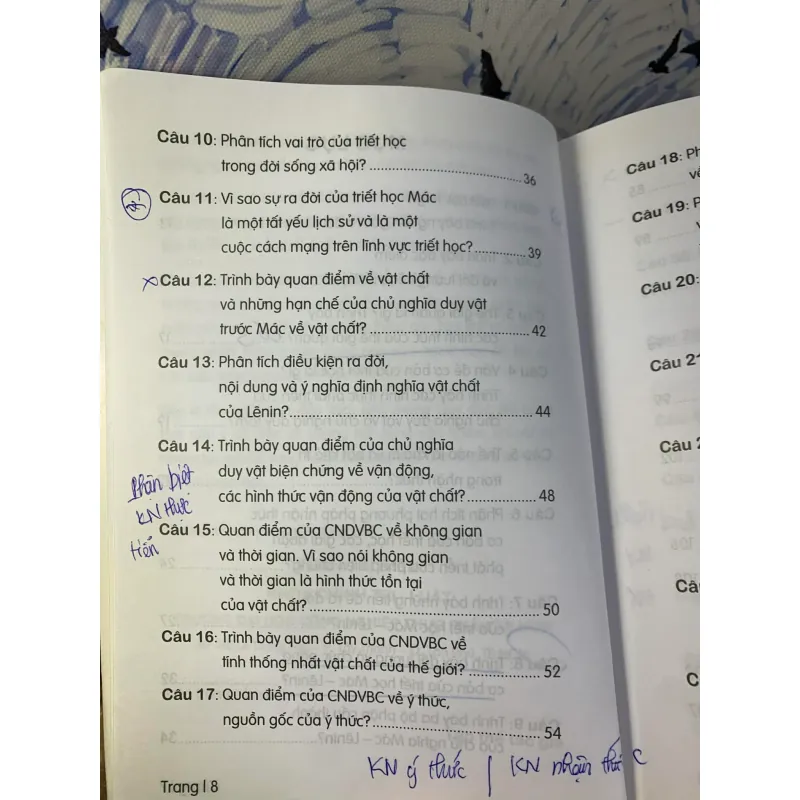 Câu 10: Phân tích vai trò của triết học
trong đời sống xã hội? 36
Câu 11: Vì sao sự ra đời của triết học Mác
là một tất yếu lịch sử và là một
cuộc cách mạng trên lĩnh vực triết học? 39
x Câu 12: Trình bày quan điểm về vật chất
và những hạn chế của chủ nghĩa duy vật
trước Mác về vật chất? 42
Câu 13: Phân tích điều kiện ra đời,
nội dung và ý nghĩa định nghĩa vật chất
của Lênin? 44
Câu 14: Trình bày quan điểm của chủ nghĩa
duy vật biện chứng về vận động,
các hình thức vận động của vật chất? 48
phân biệt
KN thực
tiễn
Câu 15: Quan điểm của CNDVBC về không gian
và thời gian. Vì sao nói không gian
và thời gian là hình thức tồn tại
của vật chất? 50
Câu 16: Trình bày quan điểm của CNDVBC về
tính thống nhất vật chất của thế giới? 52
Câu 17: Quan điểm của CNDVBC về ý thức,
nguồn gốc của ý thức? 54
KN ý thức | KN nhận thức
Trang | 8
Câu 18: Ph
Câu 19: P
Câu 20:
Câu 21
Câu
Câ
C